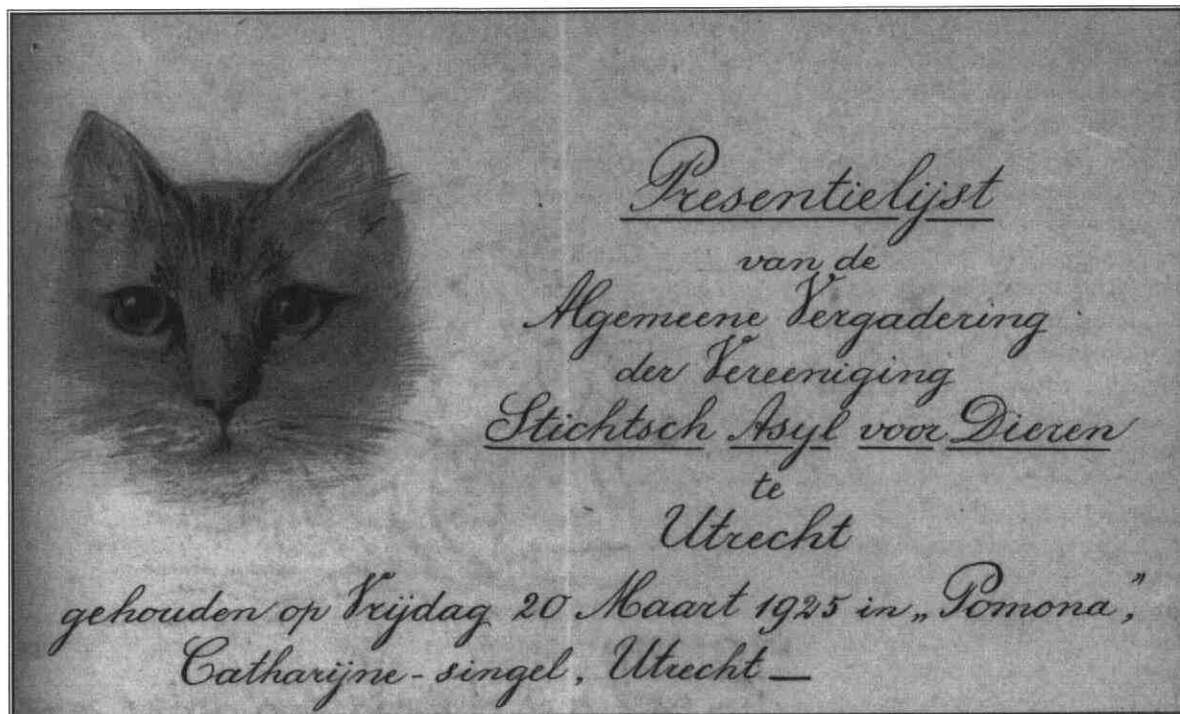 Presentielijst
van de
Algemeene Vergadering
der Vereeniging
Stichtsch Asyl voor Dieren
te
Utrecht
gehouden op Vrijdag 20 Maart 1925 in „Pomona”,
Catharijne-singel, Utrecht_